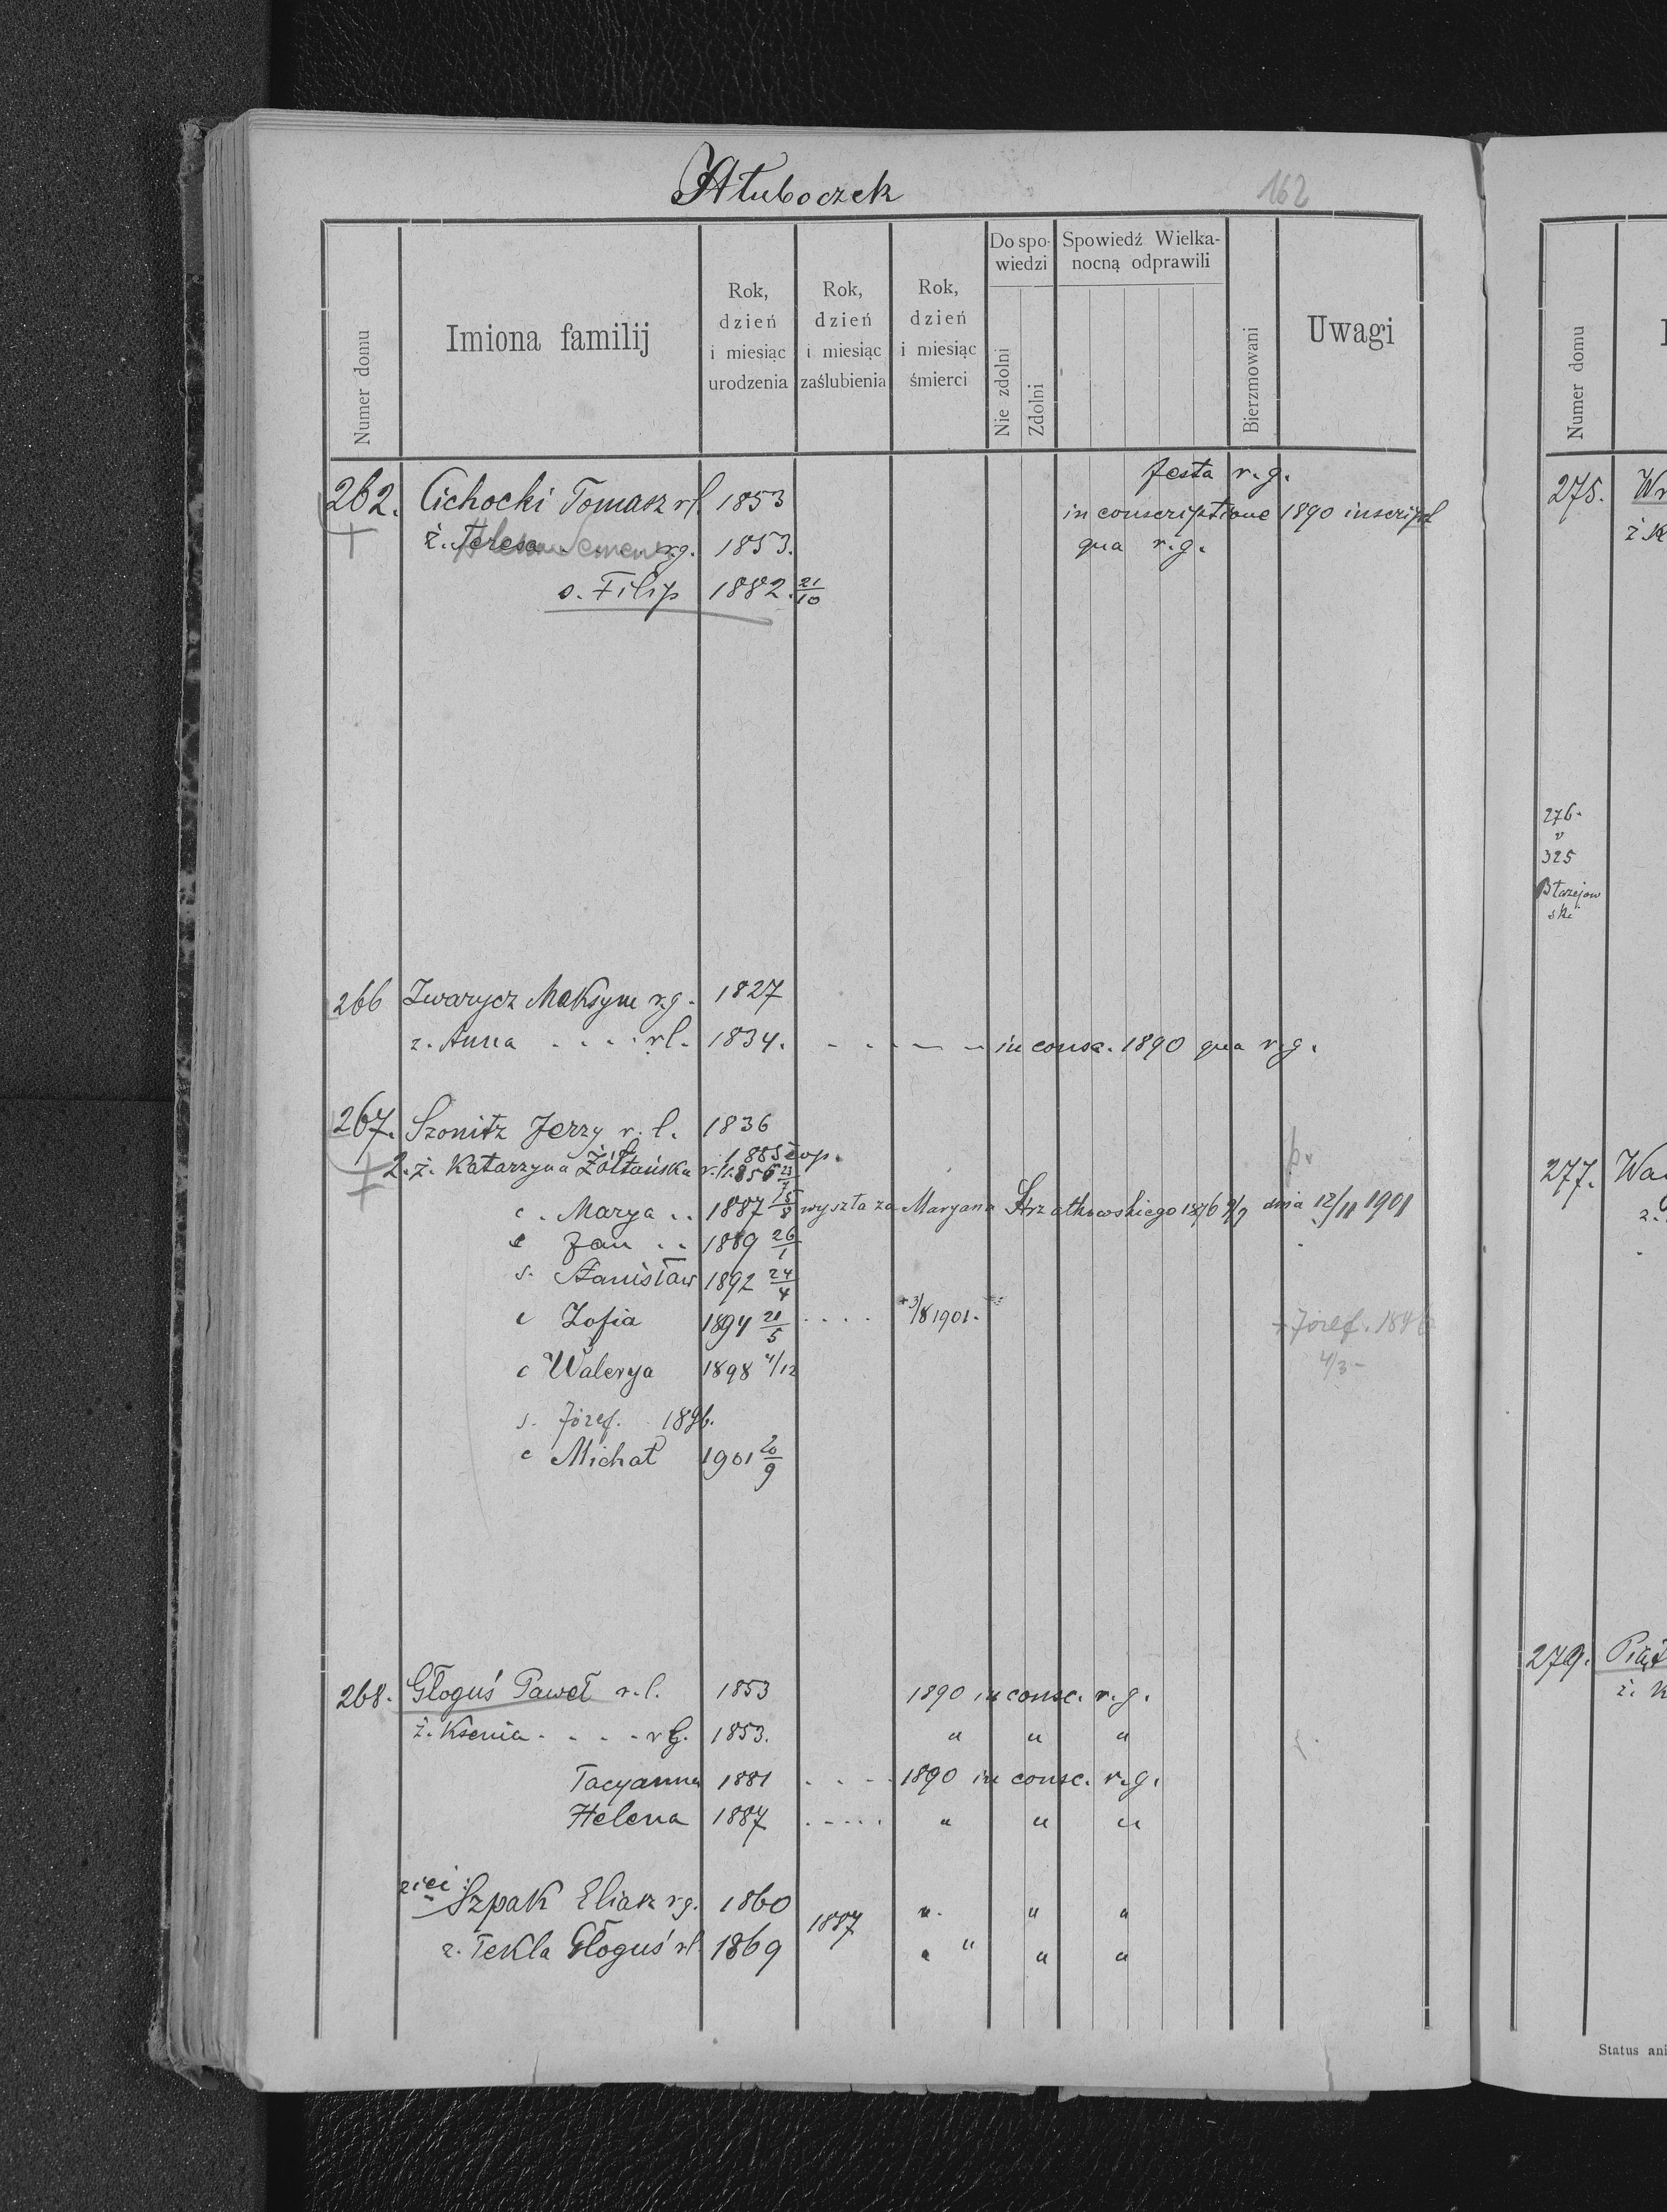 Hłuboczek
162
Numer domu
Imiona familij
Rok, dzień i miesiąc urodzenia
Rok, dzień i miesiąc zaślubienia
Rok, dzień i miesiąc śmierci
Do spowiedzi
Nie zdolni
Zdolni
Spowiedź Wielkanocną odprawili
Bierzmowani
Uwagi
festa r.g.
262. Cichocki Tomasz rl. 1853 in conscriptione 1890 inscript
ż. Teresa r.g. 1853. qua r.g.
s. Filip 1882. 21/10
266 Iwarycz Maksym r.g. 1827
ż. Anna . . . . rl. 1834. in consc. 1890 qua r.g.
267. Szonitz Jerzy r. l. 1836
1885 cop.
2. ż. Katarzyna Żółtańska r. l. 1856
c. Marya . . 1887 15/8 wyszła za Maryana Strzałkowskiego 1876 dnia 12/11 1901
Jan . . 1889 26/1
s. Stanisław 1892 24/4
c Zofia 1894 21/5 . . . . +3/8 1901.
+ Józef. 1846
4/3 -
c Walerya 1898 4/12
s. Józef. 1896.
c Michał 1901 20/9
268. Głoguś Paweł r. l. 1853 1890 in consc. r. g.
ż. Ksenia . . . . r g. 1853. " " "
Tacyanna 1881 . . . . 1890 in consc. r. g.
Helena 1887 . . . . . " " "
zięć:
Szpak Eliasz r.g. 1860 " " "
1887
ż. Tekla Głoguś rl 1869 " " " "
Numer domu
275. Wr
ż K
276.
v
325
Błażejow
ski
277. Wa
ż.
279. Piąt
ż. K
Status ani